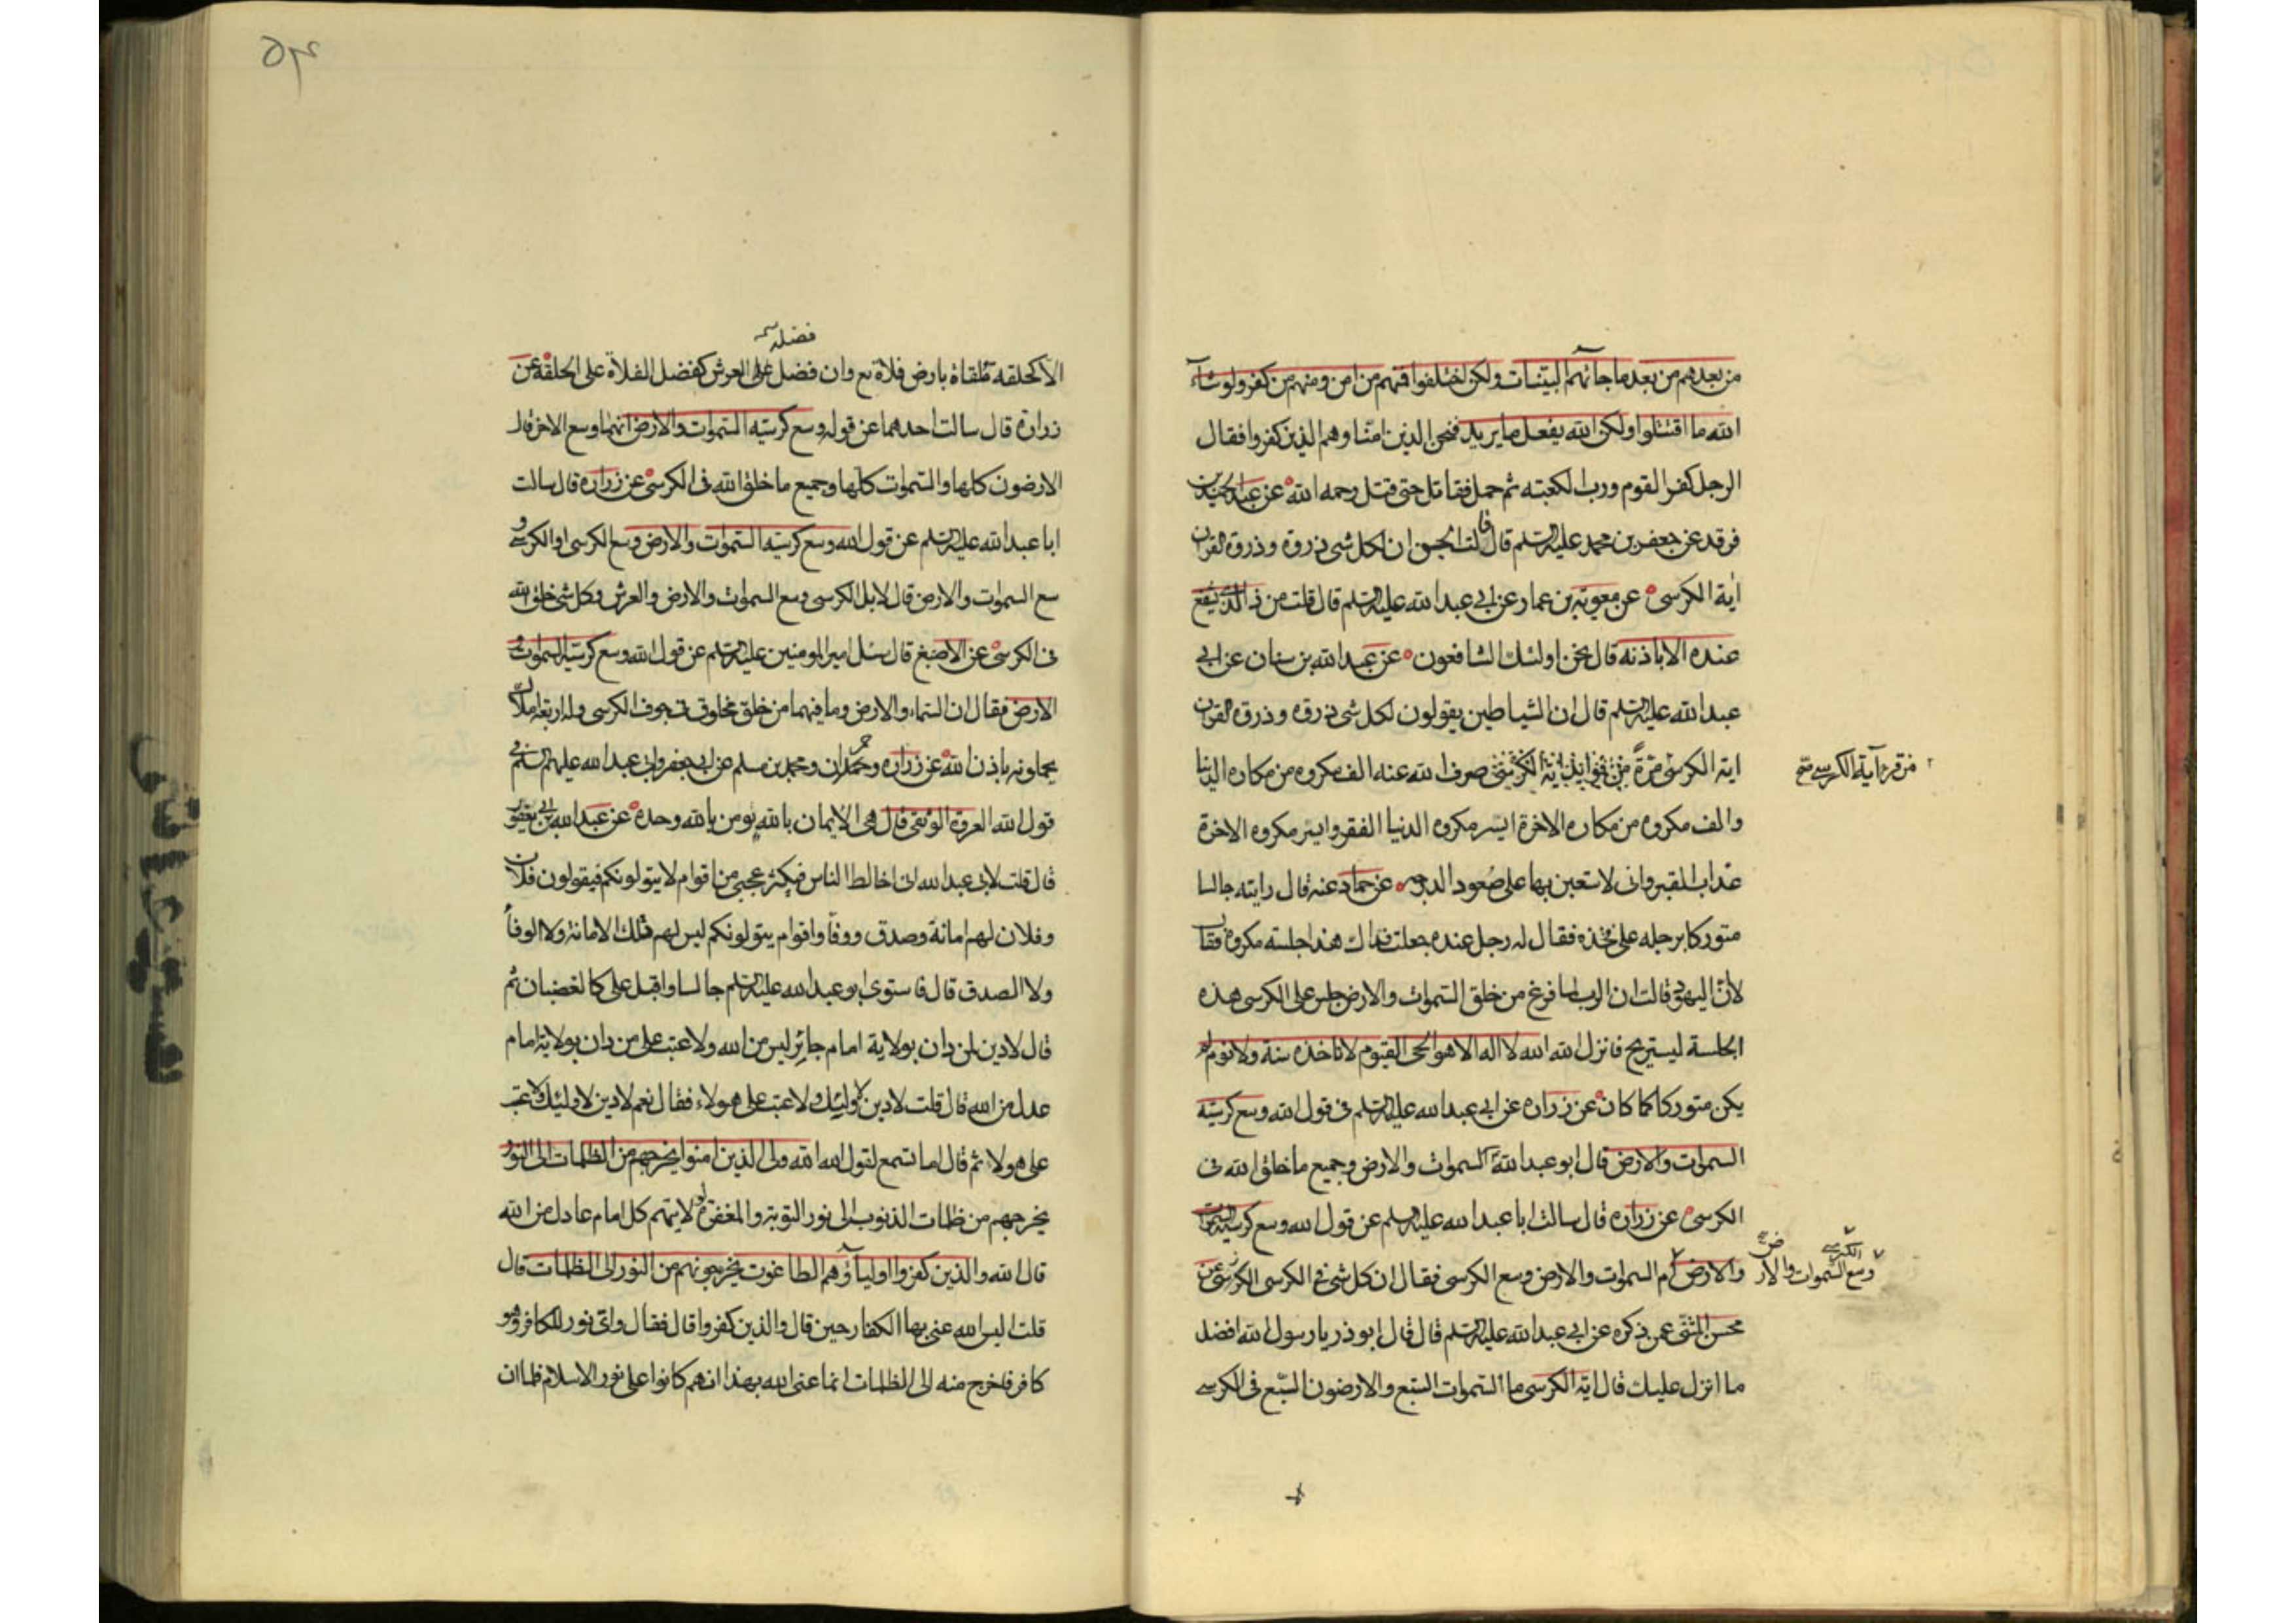 من بعدهم من بعد ما جائتهم البينات ولكن اختلفوا فمنهم من امن ومنهم من كفر ولو شاء
الله ما اقتتلوا ولكن الله يفعل ما يريد فنحن الذين امنا وهم الذين كفروا فقال
الرجل كفر القوم ورب الكعبة ثم حمل فقاتل حتى قتل رحمه الله عن عبد الحميد بن
فرقد عن جعفر بن محمد عليه السلم قال قالت الجن ان لكل شئ ذروة وذروة القران
اية الكرسى عن معوية بن عمار عن ابي عبد الله عليه السلم قال قلت من ذا الذى يشفع
عنده الا باذنه قال نحن اولئك الشافعون عن عبد الله بن سنان عن ابي
عبد الله عليه السلم قال ان الشياطين يقولون لكل شئ ذروة وذروة القران
اية الكرسى مرة صرف الله عنه الف مكروه من مكاره الدنيا
من قرء آية الكرسى
والف مكروه من مكاره الاخرة ايسر مكروه الدنيا الفقر وايسر مكروه الاخرة
عذاب القبر وانى لاستعين بها على صعود الدرجه عن حماد عنه قال رايته جالسا
متوركا برجله على فخذه فقال له رجل عنده جعلت فداك هذه جلسة مكروه فقال
لأن اليهود قالت ان الرب لما فرغ من خلق السموات والارض جلس على الكرسى هذه
الجلسة ليستريح فانزل الله الله لا اله الا هو الحى القيوم لا تاخذه سنة ولا نوم لم
يكن متوركا كما كان عن زرارة عن ابي عبد الله عليه السلم في قول الله وسع كرسيه
السموات والارض قال ابو عبد الله السموات والارض وجميع ما خلق الله في
الكرسى عن زرارة قال سالت ابا عبد الله عليه السلم عن قول الله وسع كرسيه السموات
والارض ام السموات والارض وسع الكرسى فقال ان كل شئ في الكرسى الكرسى عن
وسع الكرسى السموات والارض
محسن المثنى عمن ذكره عن ابي عبد الله عليه السلم قال قال ابو ذر يا رسول الله افضل
ما انزل عليك قال اية الكرسى ما السموات السبع والارضون السبع في الكرسى
٥٢
فضله
الا كحلقه ملقاة بارض فلاة وان فضل العرش كفضل الفلاة على الحلقة عن
زرارة قال سالت احدهما عن قوله وسع كرسيه السموات والارض ايهما وسع الاخر قال
الارضون كلها والسموات كلها وجميع ما خلق الله في الكرسى عن زرارة قال سالت
ابا عبد الله عليه السلم عن قول الله وسع كرسيه السموات والارض وسع الكرسى او الكرسى و
سع السموات والارض قال لا بل الكرسى وسع السموات والارض والعرش وكل شئ خلق الله
في الكرسى عن الاصبغ قال سئل امير المومنين عليه السلم عن قول الله وسع كرسيه السموات و
الارض فقال ان السماء والارض وما فيهما من خلق مخلوق في جوف الكرسى وله اربعة املاك
يحملونه باذن الله عن زرارة وحمران ومحمد بن مسلم عن ابي جعفر وابي عبد الله عليهم السلم في
قول الله العروة الوثقى قال هي الايمان بالله يومن بالله وحده عن عبد الله بن ابي يعفور
قال قلت لابي عبد الله انى اخالط الناس فيكثر عجبى من اقوام لا يتولونكم فيقولون فلان
وفلان لهم امانة وصدق ووفآ واقوام يتولونكم ليس لهم تلك الامانة ولا الوفآ
ولا الصدق قال فاستوى ابو عبد الله عليه السلم جالسا واقبل على كالغضبان ثم
قال لا دين لمن دان بولاية امام جائر ليس من الله ولا عتب على من دان بولاية امام
عدل من الله قال قلت لا دين لاولئك ولا عتب على هولاء فقال نعم لا دين لاولئك ولا عتب
على هولاء ثم قال اما تسمع لقول الله الله ولى الذين امنوا يخرجهم من الظلمات الى النور
يخرجهم من ظلمات الذنوب الى نور التوبة والمغفرة لولايتهم كل امام عادل من الله
قال الله والذين كفروا اوليآؤهم الطاغوت يخرجونهم من النور الى الظلمات قال
قلت اليس الله عنى بها الكفار حين قال والذين كفروا قال فقال واى نور للكافر وهو
كافر فاخرج منه الى الظلمات انما عنى الله بهذا انهم كانوا على نور الاسلام فلما ان